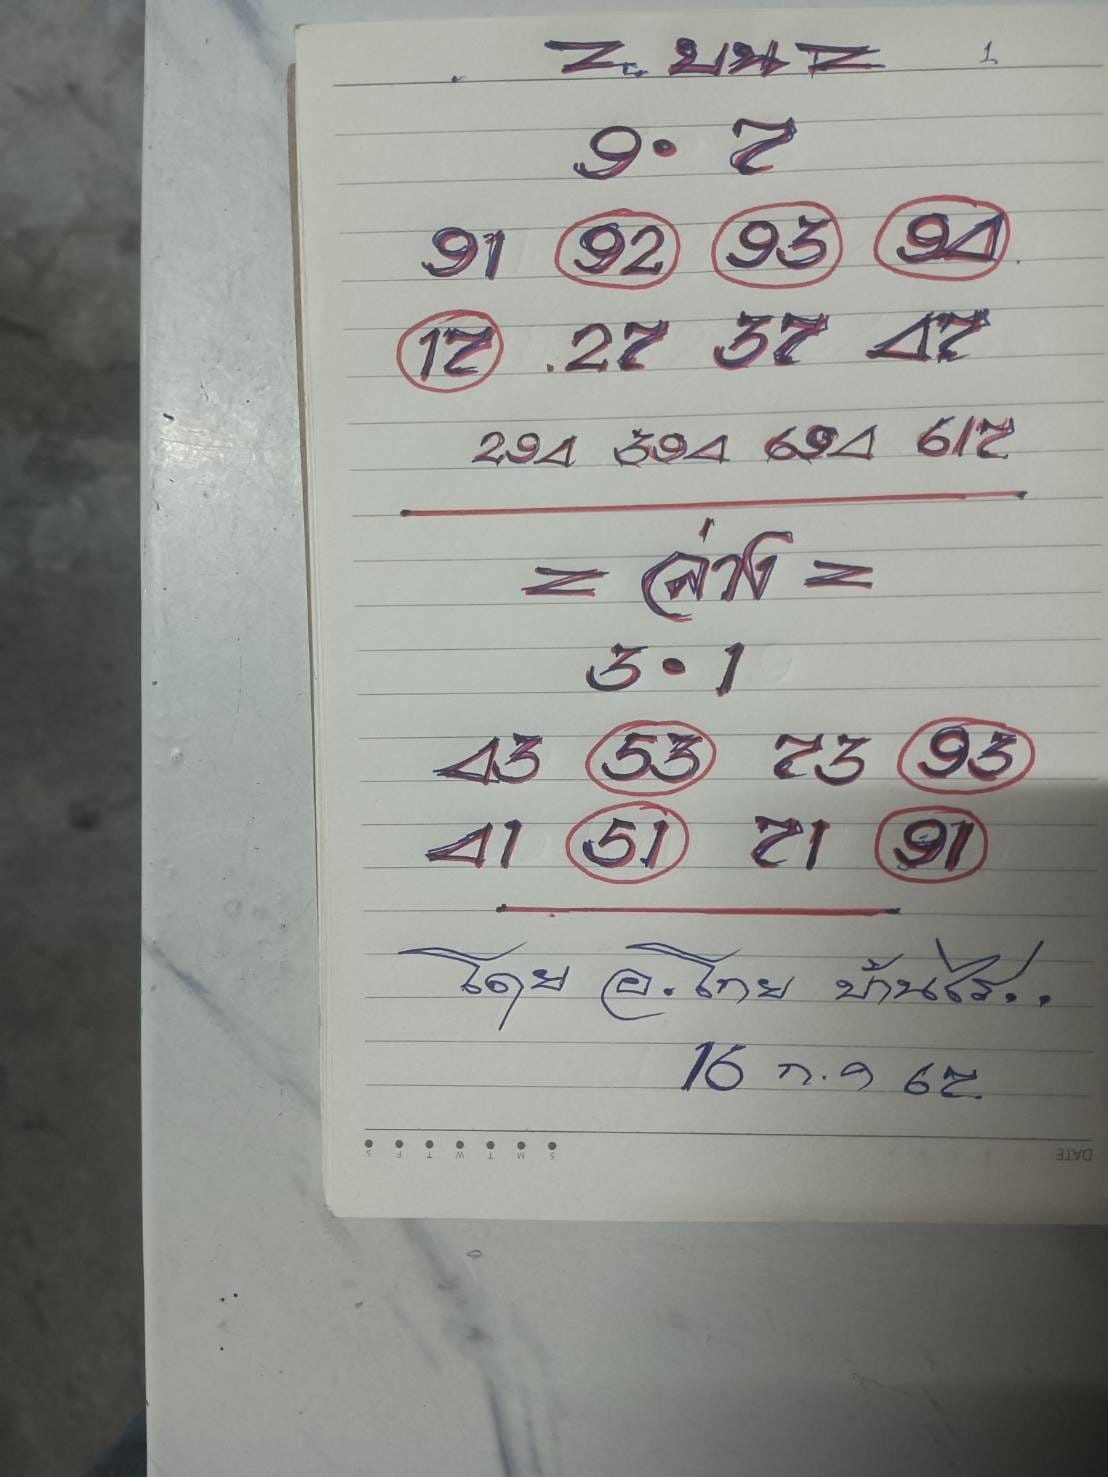 = บน = 1
9 • 7
91 92 93 94
17 27 37 47
294 394 694 617
= ล่าง =
3 • 1
43 53 73 93
41 51 71 91
โดย อ.ไทย บ้านไร่..
16 ก.ค 67
S F T W T M S DATE